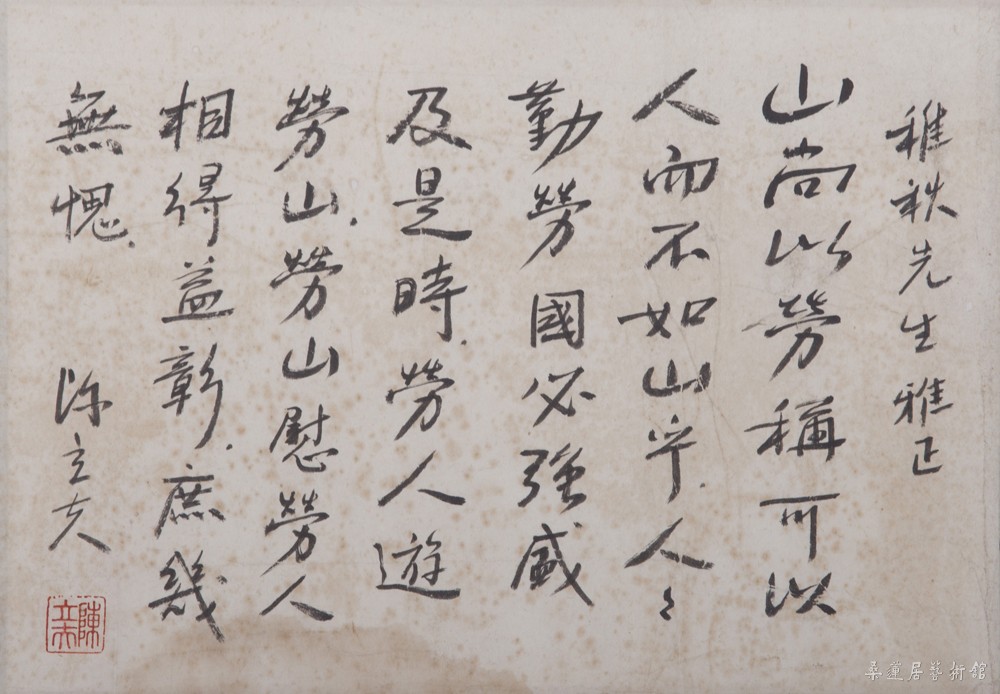 稚秩先生雅正
山尚以勞稱可以
人而不如山乎人〻
勤勞國必強盛
及是時勞人遊
勞山勞山慰勞人
相得益彰庶幾
無愧
陳立夫
陳立夫
桑蓮居藝術館